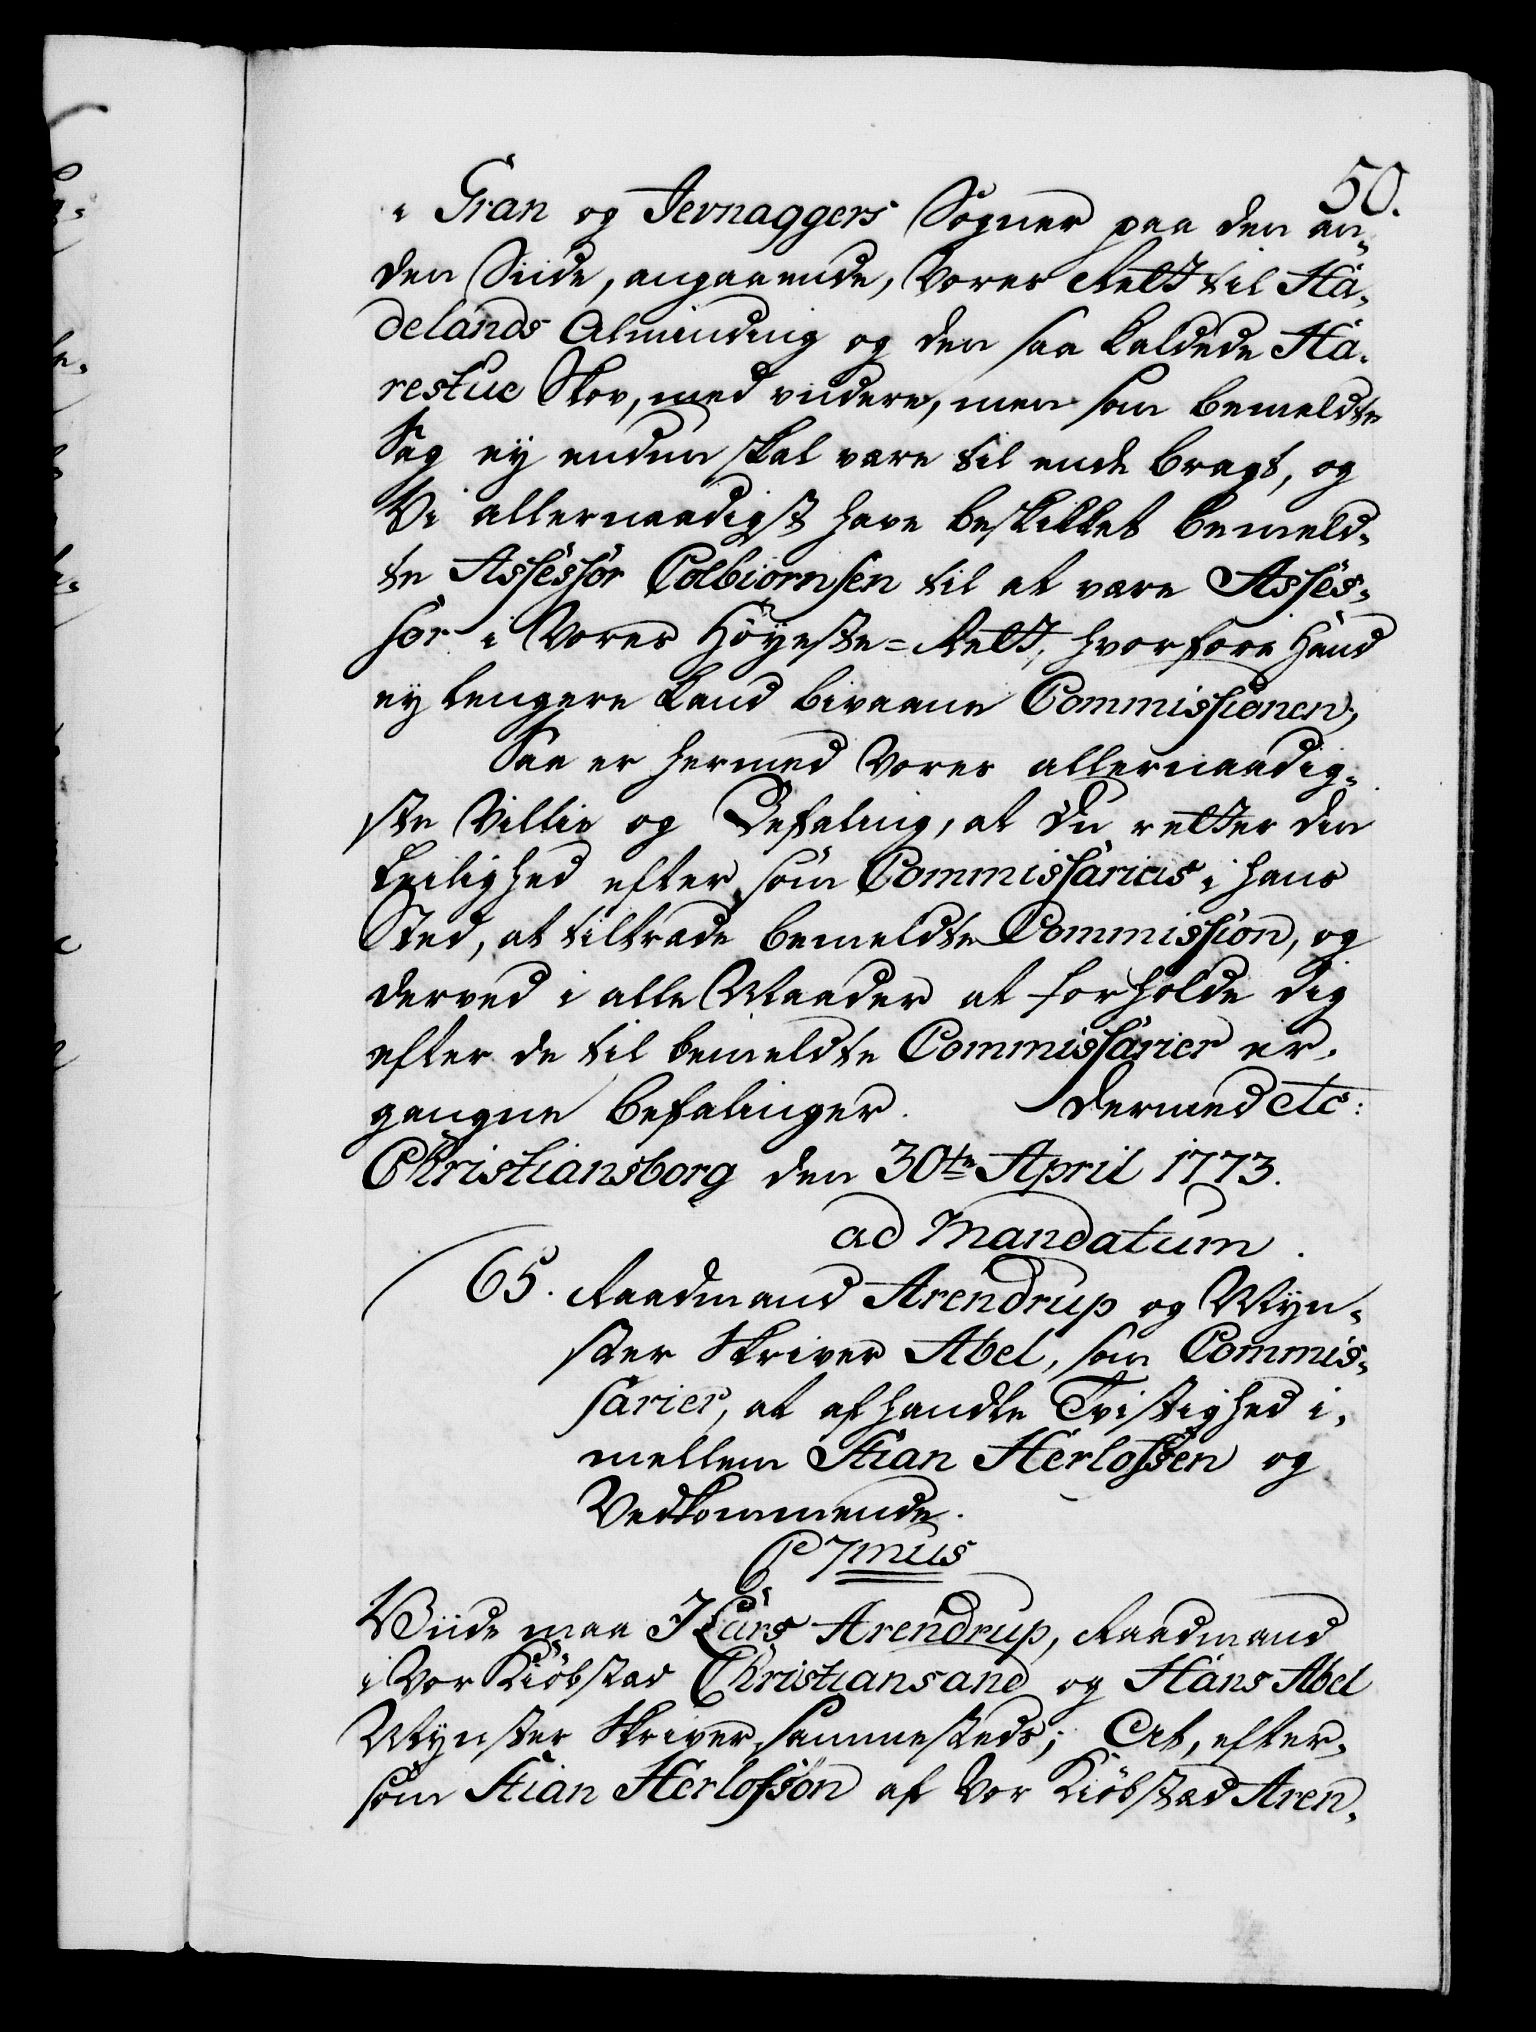 50.
i Gran og Jevnaggers Sogner paa den an-
den Siide, angaaende, Vores Rett til Ha-
delands Alminding og den saa kaldede Ha-
restue Skov, med viidere, men som bemeldte
Sag ey endnu skal være til ende bragt, og
Vi allernaadigst have beskikket bemeld-
te Assessor Colbiornsen til at være Asses-
sor i Vores Höyeste-Rett, hvorfore Hand
ey lengere kand bivaane Commissionen;
Saa er hermed Vores allernaadig-
ste Villie og Befaling, at du retter din
Leilighed efter, som Commissarius i hans
Sted, at tiltræde bemeldte Commission, og
derved i alle Maader at forholde dig
efter de til bemeldte Commissarier er-
gangne Befalinger. Dermed etc:
Christiansborg den 30te April 1773.
ad Mandatum.
65. Raadmand Arendrup og Myn-
ster Skriver Abel, som Commis-
sarier, at afhandle Tvistighed i-
mellem Stian Herlofsen og
Vedkommende.
C 7mus
Viide maa I Lars Arendrup, Raadmand
i Vor Kiöbstad Christiansand og Hans Abel
Mynster Skriver sammesteds; At, efter-
som Stian Herlofson af Vor Kiöbstad Aren-